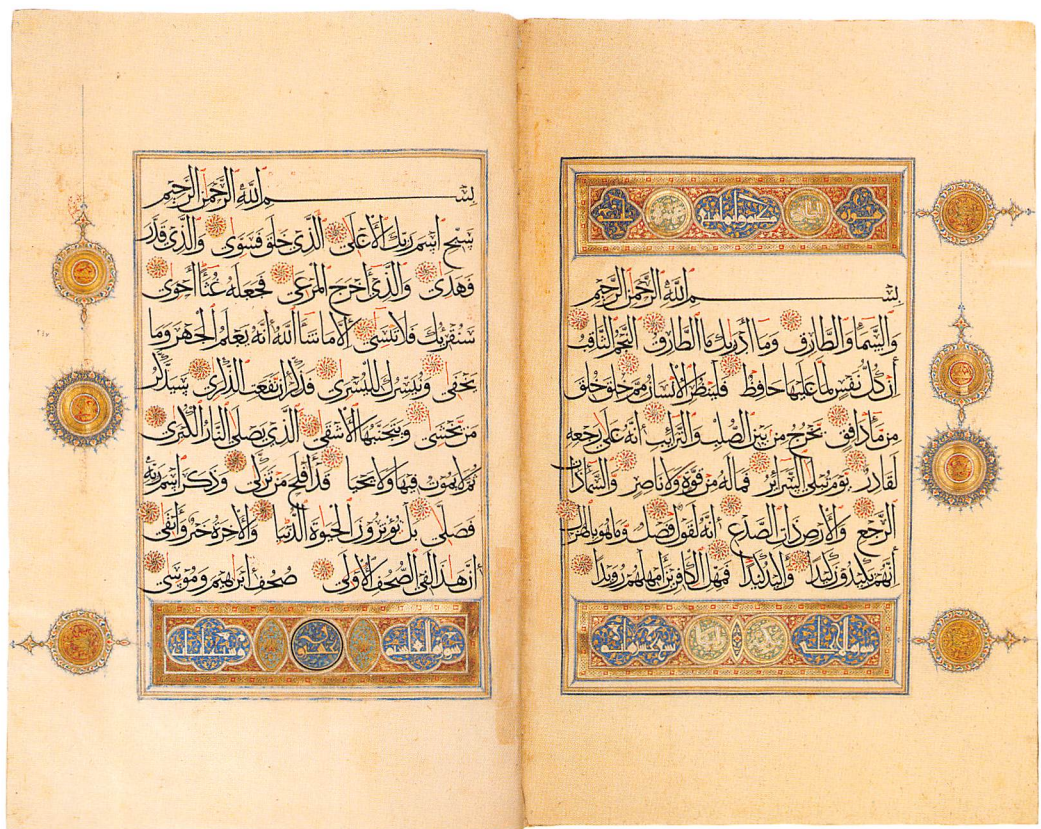 بسم الله الرحمن الرحيم
والسماء والطارق وما أدريك ما الطارق النجم الثاقب
إن كل نفس لما عليها حافظ فلينظر الإنسان مم خلق خلق
من ماء دافق يخرج من بين الصلب والترائب إنه على رجعه
لقادر يوم تبلى السرائر فما له من قوة ولا ناصر والسماء ذات
الرجع والأرض ذات الصدع إنه لقول فصل وما هو بالهزل
إنهم يكيدون كيدا وأكيد كيدا فمهل الكافرين أمهلهم رويدا
سورة الأعلى
بسم الله الرحمن الرحيم
سبح اسم ربك الأعلى الذي خلق فسوى والذي قدر
فهدى والذي أخرج المرعى فجعله غثاء أحوى
سنقرئك فلا تنسى إلا ما شاء الله إنه يعلم الجهر وما
يخفى ونيسرك لليسرى فذكر إن نفعت الذكرى سيذكر
من يخشى ويتجنبها الأشقى الذي يصلى النار الكبرى
ثم لا يموت فيها ولا يحيى قد أفلح من تزكى وذكر اسم ربه
فصلى بل تؤثرون الحيوة الدنيا والآخرة خير وأبقى
إن هذا لفي الصحف الأولى صحف إبراهيم وموسى
سورة الغاشية